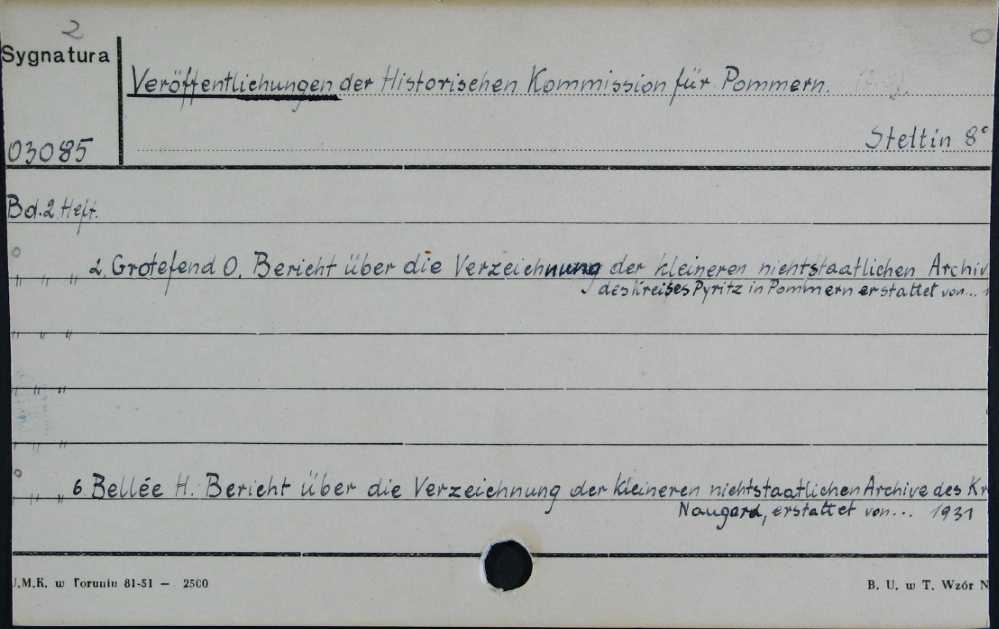 2
Sygnatura
Veröffentlichungen der Historischen Kommission für Pommern.
03085
Stettin 8°
Bd. 2 Heft.
" " " 2. Grotefend O. Bericht über die Verzeichnung der kleineren nichtstaatlichen Archiv
des Kreises Pyritz in Pommern erstattet von...
" " "
" " "
" " "
" " " 6 Bellée H. Bericht über die Verzeichnung der kleineren nichtstaatlichen Archive des Kr
Naugard, erstattet von... 1931
U.M.K. w Toruniu 81-51 — 2500
B. U. w T. Wzór N